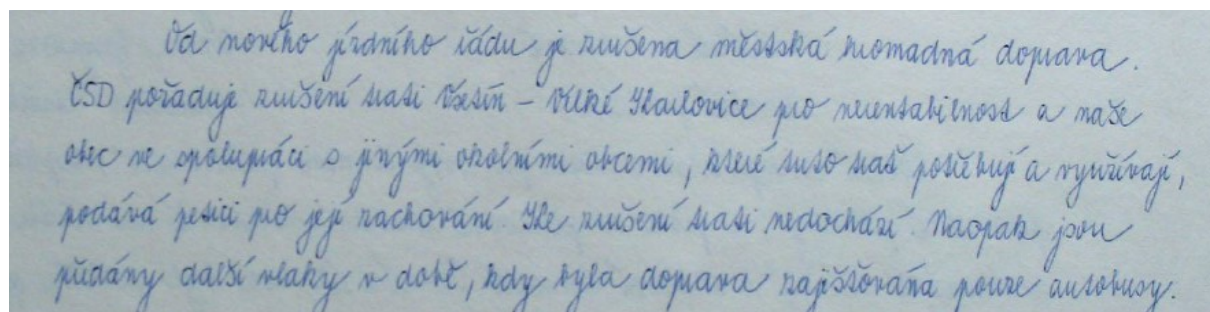 Od nového jízdního řádu je zrušena městská hromadná doprava.
ČSD pořaduje zrušení trati Vsetín – Velké Karlovice pro nerentabilnost a naše
obec ve spolupráci s jinými okolními obcemi, které tuto trať potřebují a využívají,
podává petici pro její zachování. Ke zrušení trati nedochází. Naopak jsou
přidány další vlaky v době, kdy byla doprava zajišťována pouze autobusy.